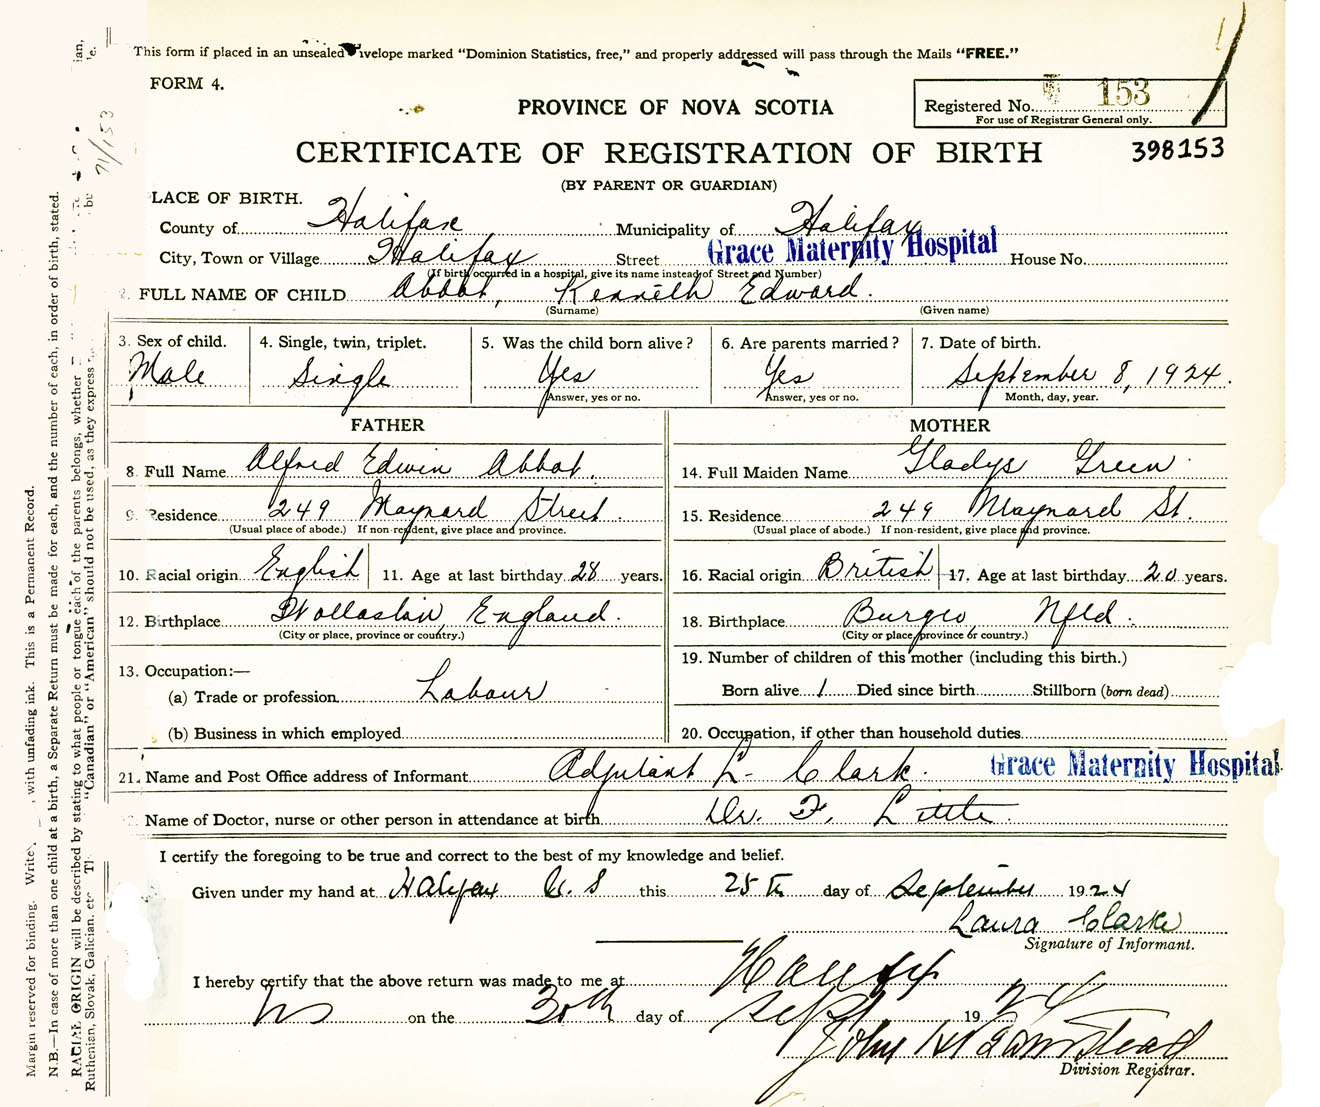 This form if placed in an unsealed velope marked "Dominion Statistics, free," and properly addressed will pass through the Mails "FREE."
FORM 4.
PROVINCE OF NOVA SCOTIA
Registered No. 153
For use of Registrar General only.
CERTIFICATE OF REGISTRATION OF BIRTH
398153
(BY PARENT OR GUARDIAN)
LACE OF BIRTH.
County of Halifax Municipality of Halifax
City, Town or Village Halifax Street Grace Maternity Hospital House No.
(If birth occurred in a hospital, give its name instead of Street and Number)
2. FULL NAME OF CHILD Abbot, Kenneth Edward.
(Surname) (Given name)
3. Sex of child. 4. Single, twin, triplet. 5. Was the child born alive? 6. Are parents married? 7. Date of birth.
Male Single Yes Yes September 8, 1924.
Answer, yes or no. Answer, yes or no. Month, day, year.
FATHER MOTHER
8. Full Name Alfred Edwin Abbot. 14. Full Maiden Name Gladys Green.
9. Residence 249 Maynard Street. 15. Residence 249 Maynard St.
(Usual place of abode.) If non-resident, give place and province. (Usual place of abode.) If non-resident, give place and province.
10. Racial origin English 11. Age at last birthday 28 years. 16. Racial origin British 17. Age at last birthday 20 years.
12. Birthplace Wollaston, England. 18. Birthplace Burgeo Nfld.
(City or place, province or country.) (City or place, province or country.)
13. Occupation:— 19. Number of children of this mother (including this birth.)
(a) Trade or profession Labour Born alive 1 Died since birth Stillborn (born dead)
(b) Business in which employed 20. Occupation, if other than household duties
21. Name and Post Office address of Informant Adjutant L. Clark. Grace Maternity Hospital
Name of Doctor, nurse or other person in attendance at birth Dr. F. Little.
I certify the foregoing to be true and correct to the best of my knowledge and belief.
Given under my hand at Halifax N.S this 25th day of September 1924
Laura Clarke
Signature of Informant.
I hereby certify that the above return was made to me at Halifax
NS on the 30th day of Sept 1924
John H
Division Registrar.
Margin reserved for binding. Write with unfading ink. This is a Permanent Record.
N.B.—In case of more than one child at a birth, a Separate Return must be made for each, and the number of each, in order of birth, stated.
RACIAL ORIGIN will be described by stating to what people or tongue each of the parents belongs, whether
Ruthenian, Slovak, Galician, etc. "Canadian" or "American" should not be used, as they express
71/153